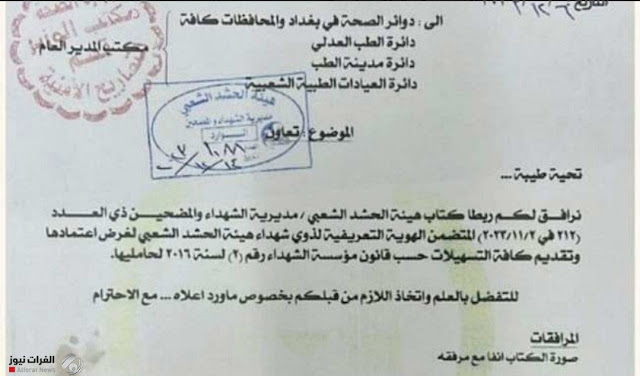 التاريخ
الى : دوائر الصحة في بغداد والمحافظات كافة
دائرة الطب العدلي
مكتب المدير العام
دائرة مدينة الطب
دائرة العيادات الطبية الشعبية
مكتب الوزير
قسم
الأمنية
هيئة الحشد الشعبي
مديرية الشهداء والمضحين
الوارد
الموضوع : تعاون
تحية طيبة ...
نرافق لكم ربطا كتاب هيئة الحشد الشعبي / مديرية الشهداء والمضحين ذي العدد
(٢١٢ في ٢٠٢٣/١١/٢) المتضمن الهوية التعريفية لذوي شهداء هيئة الحشد الشعبي لغرض اعتمادها
وتقديم كافة التسهيلات حسب قانون مؤسسة الشهداء رقم (٢) لسنة ٢٠١٦ لحامليها.
للتفضل بالعلم واتخاذ اللازم من قبلكم بخصوص ماورد اعلاه ... مع الاحترام
المرافقات
صورة الكتاب انفا مع مرفقه
الفرات نيوز
Alforat News